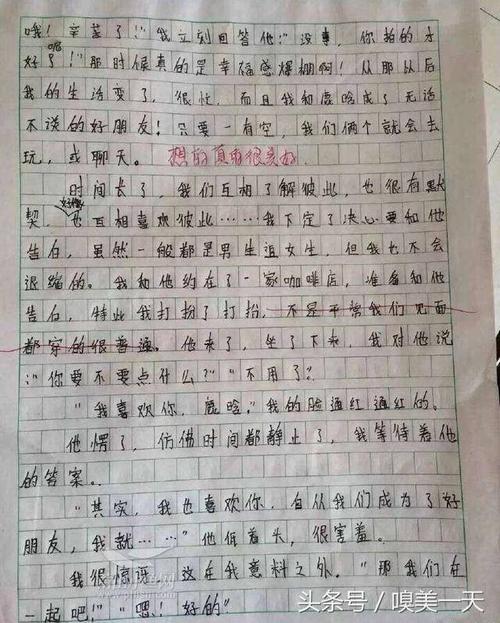 哦！辛苦了！"我立刻回答他:"没事，你拍的才
好呢了！"那时候真的是幸福感爆棚啊！从那以后
我的生活变了，很忙，而且我和鹿晗成了无话
不说的好朋友！只要一有空，我们俩个就会去
玩，或聊天。想的真的很美好
时间长了，我们互相了解彼此，也很有默
契，好像也互相喜欢彼此……我下定了决心要和他
告白，虽然一般都是男生追女生，但我也不会
退缩的。我和他约在了一家咖啡店，准备和他
告白，特此我打扮了打扮，不是平常我们见面
都穿的很普通。他来了，坐了下来，我对他说
:"你要不要点什么？""不用了"。
"我喜欢你，鹿晗。"我的脸通红通红的。
他愣了，仿佛时间都静止了，我等待着他
的答案。
"其实，我也喜欢你，自从我们成为了好
朋友，我就……"他低着头，很害羞。
我很惊讶，这在我意料之外。"那我们在
一起吧！""嗯！好的"
头条号/嗅美一天